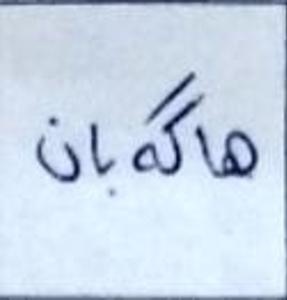 هاگەبان